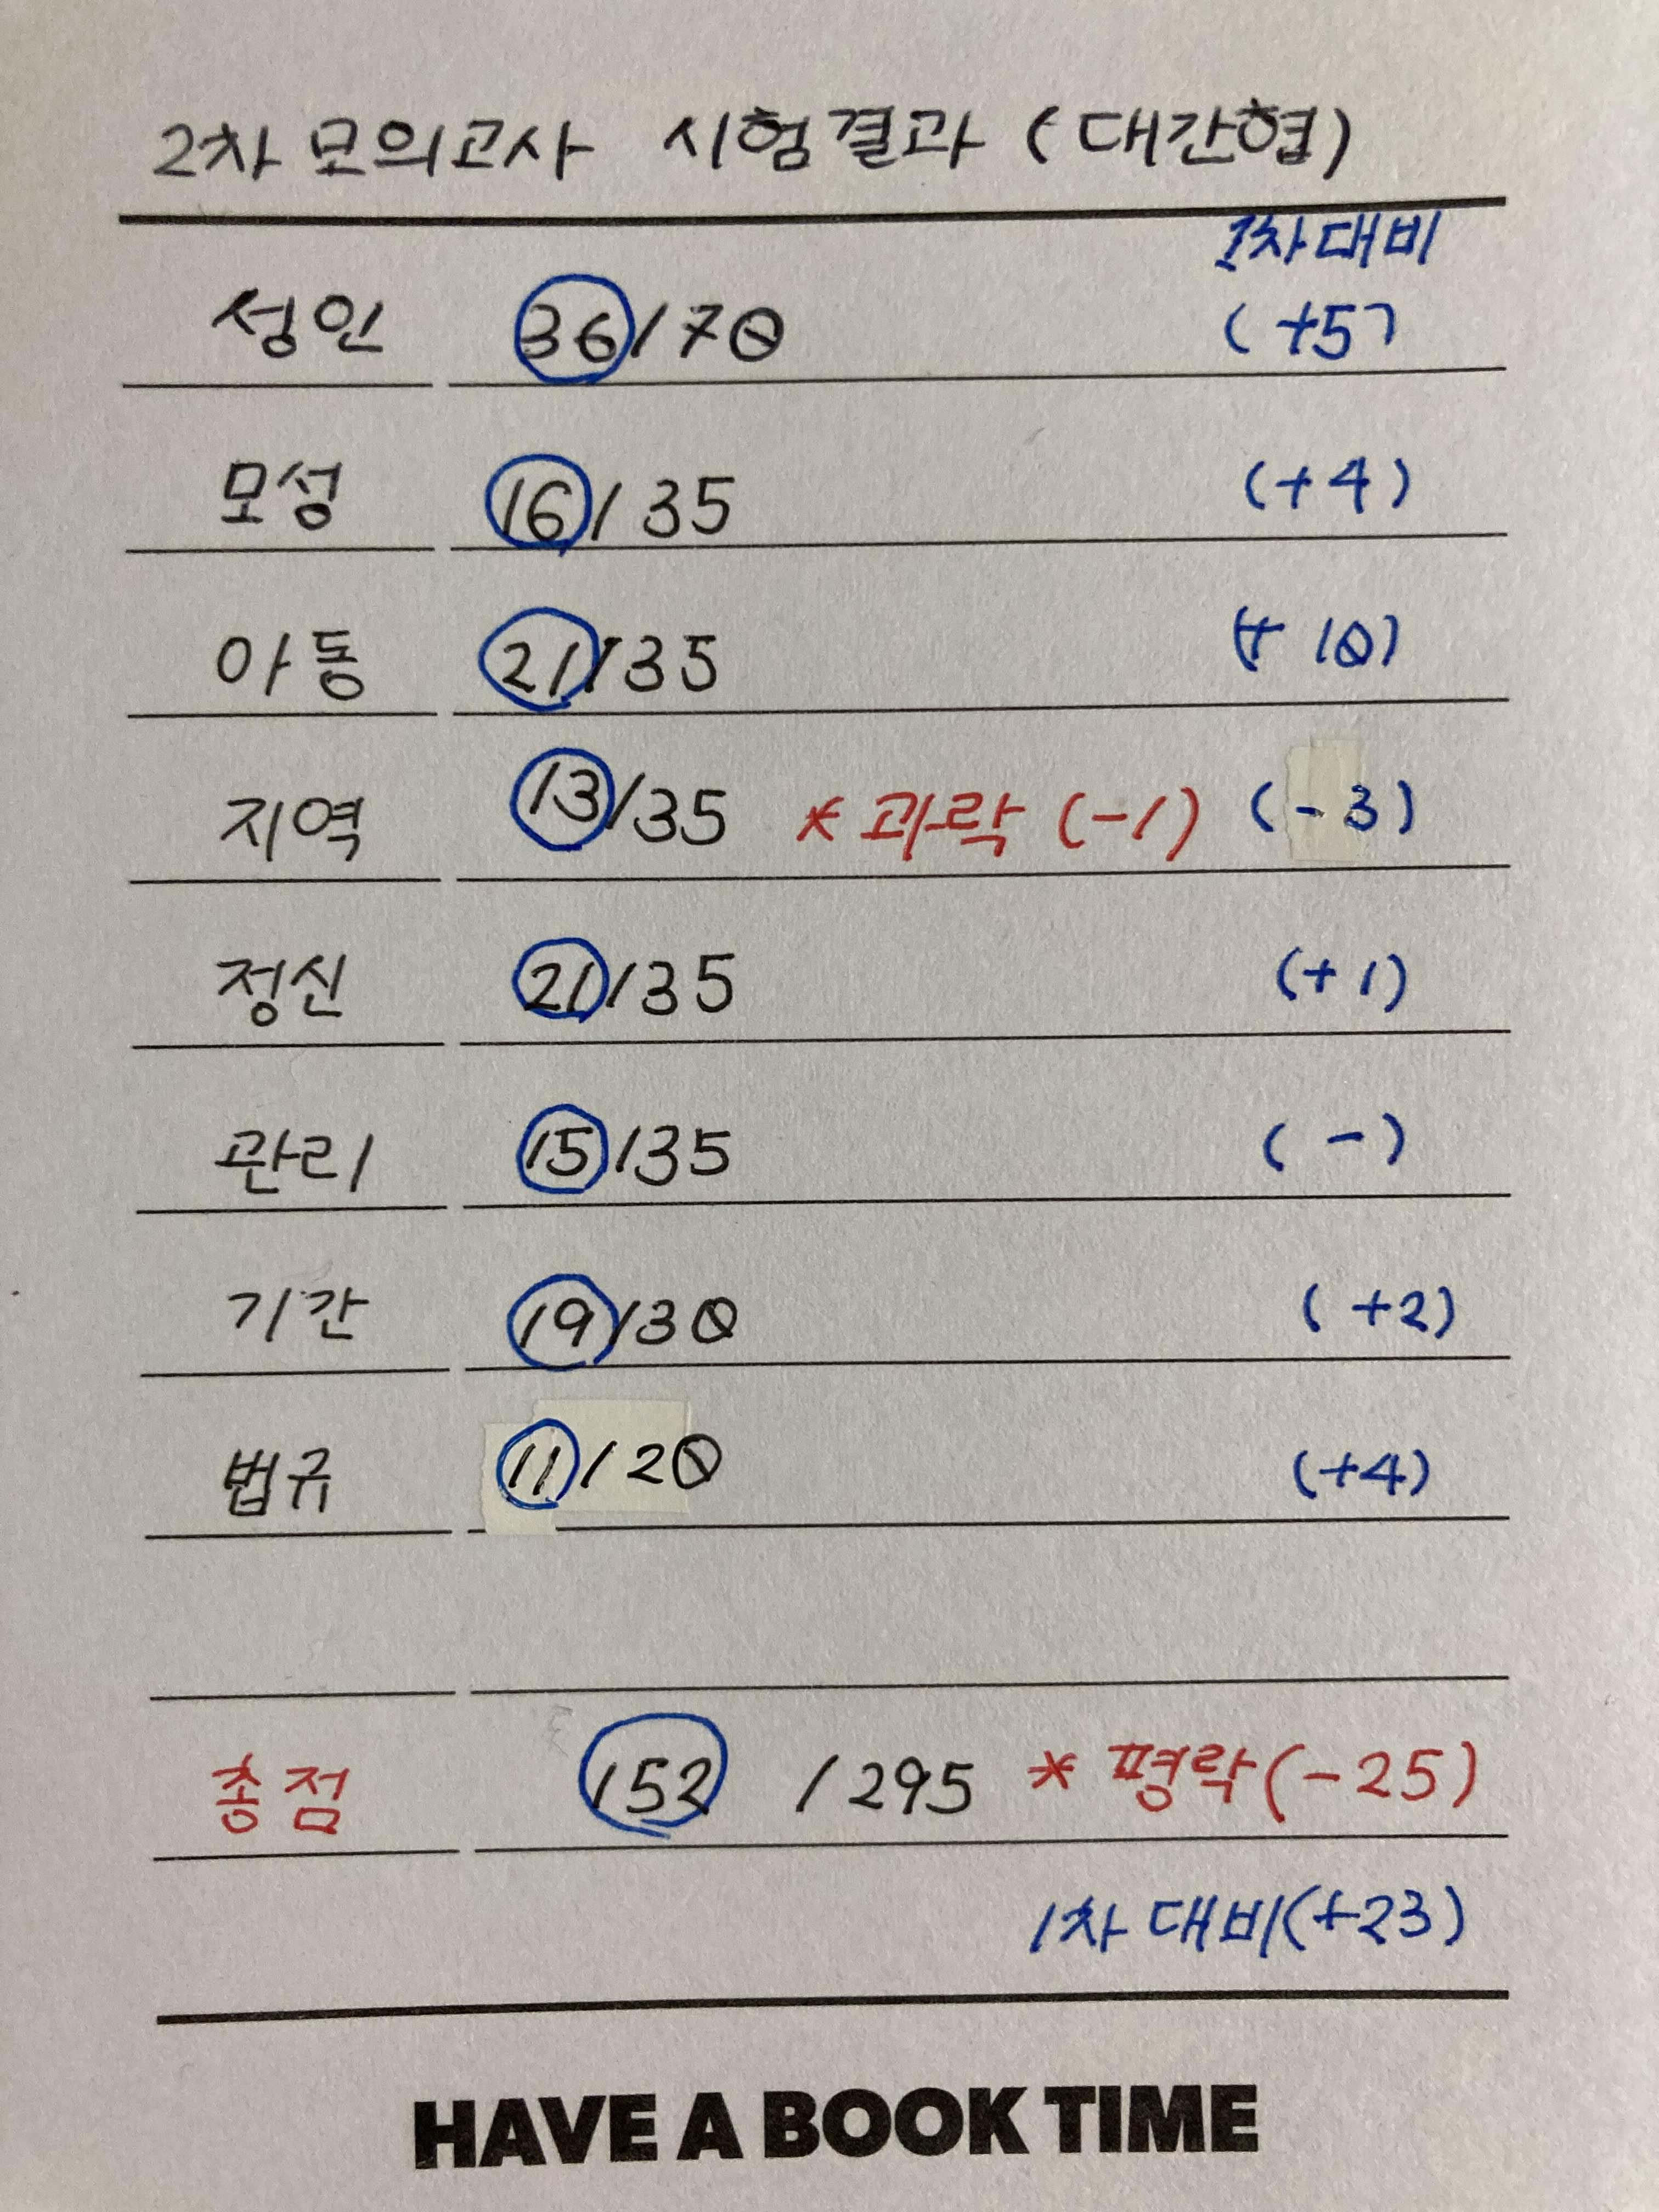 2차 모의고사 시험결과 (대간협)
1차대비
성인 36/70 (+5)
모성 16/35 (+4)
아동 21/35 (+10)
지역 13/35 * 과락 (-1) (-3)
정신 21/35 (+1)
관리 15/35 (-)
기간 19/30 (+2)
법규 11/20 (+4)
총점 152 /295 * 평락(-25)
1차 대비(+23)
HAVE A BOOK TIME